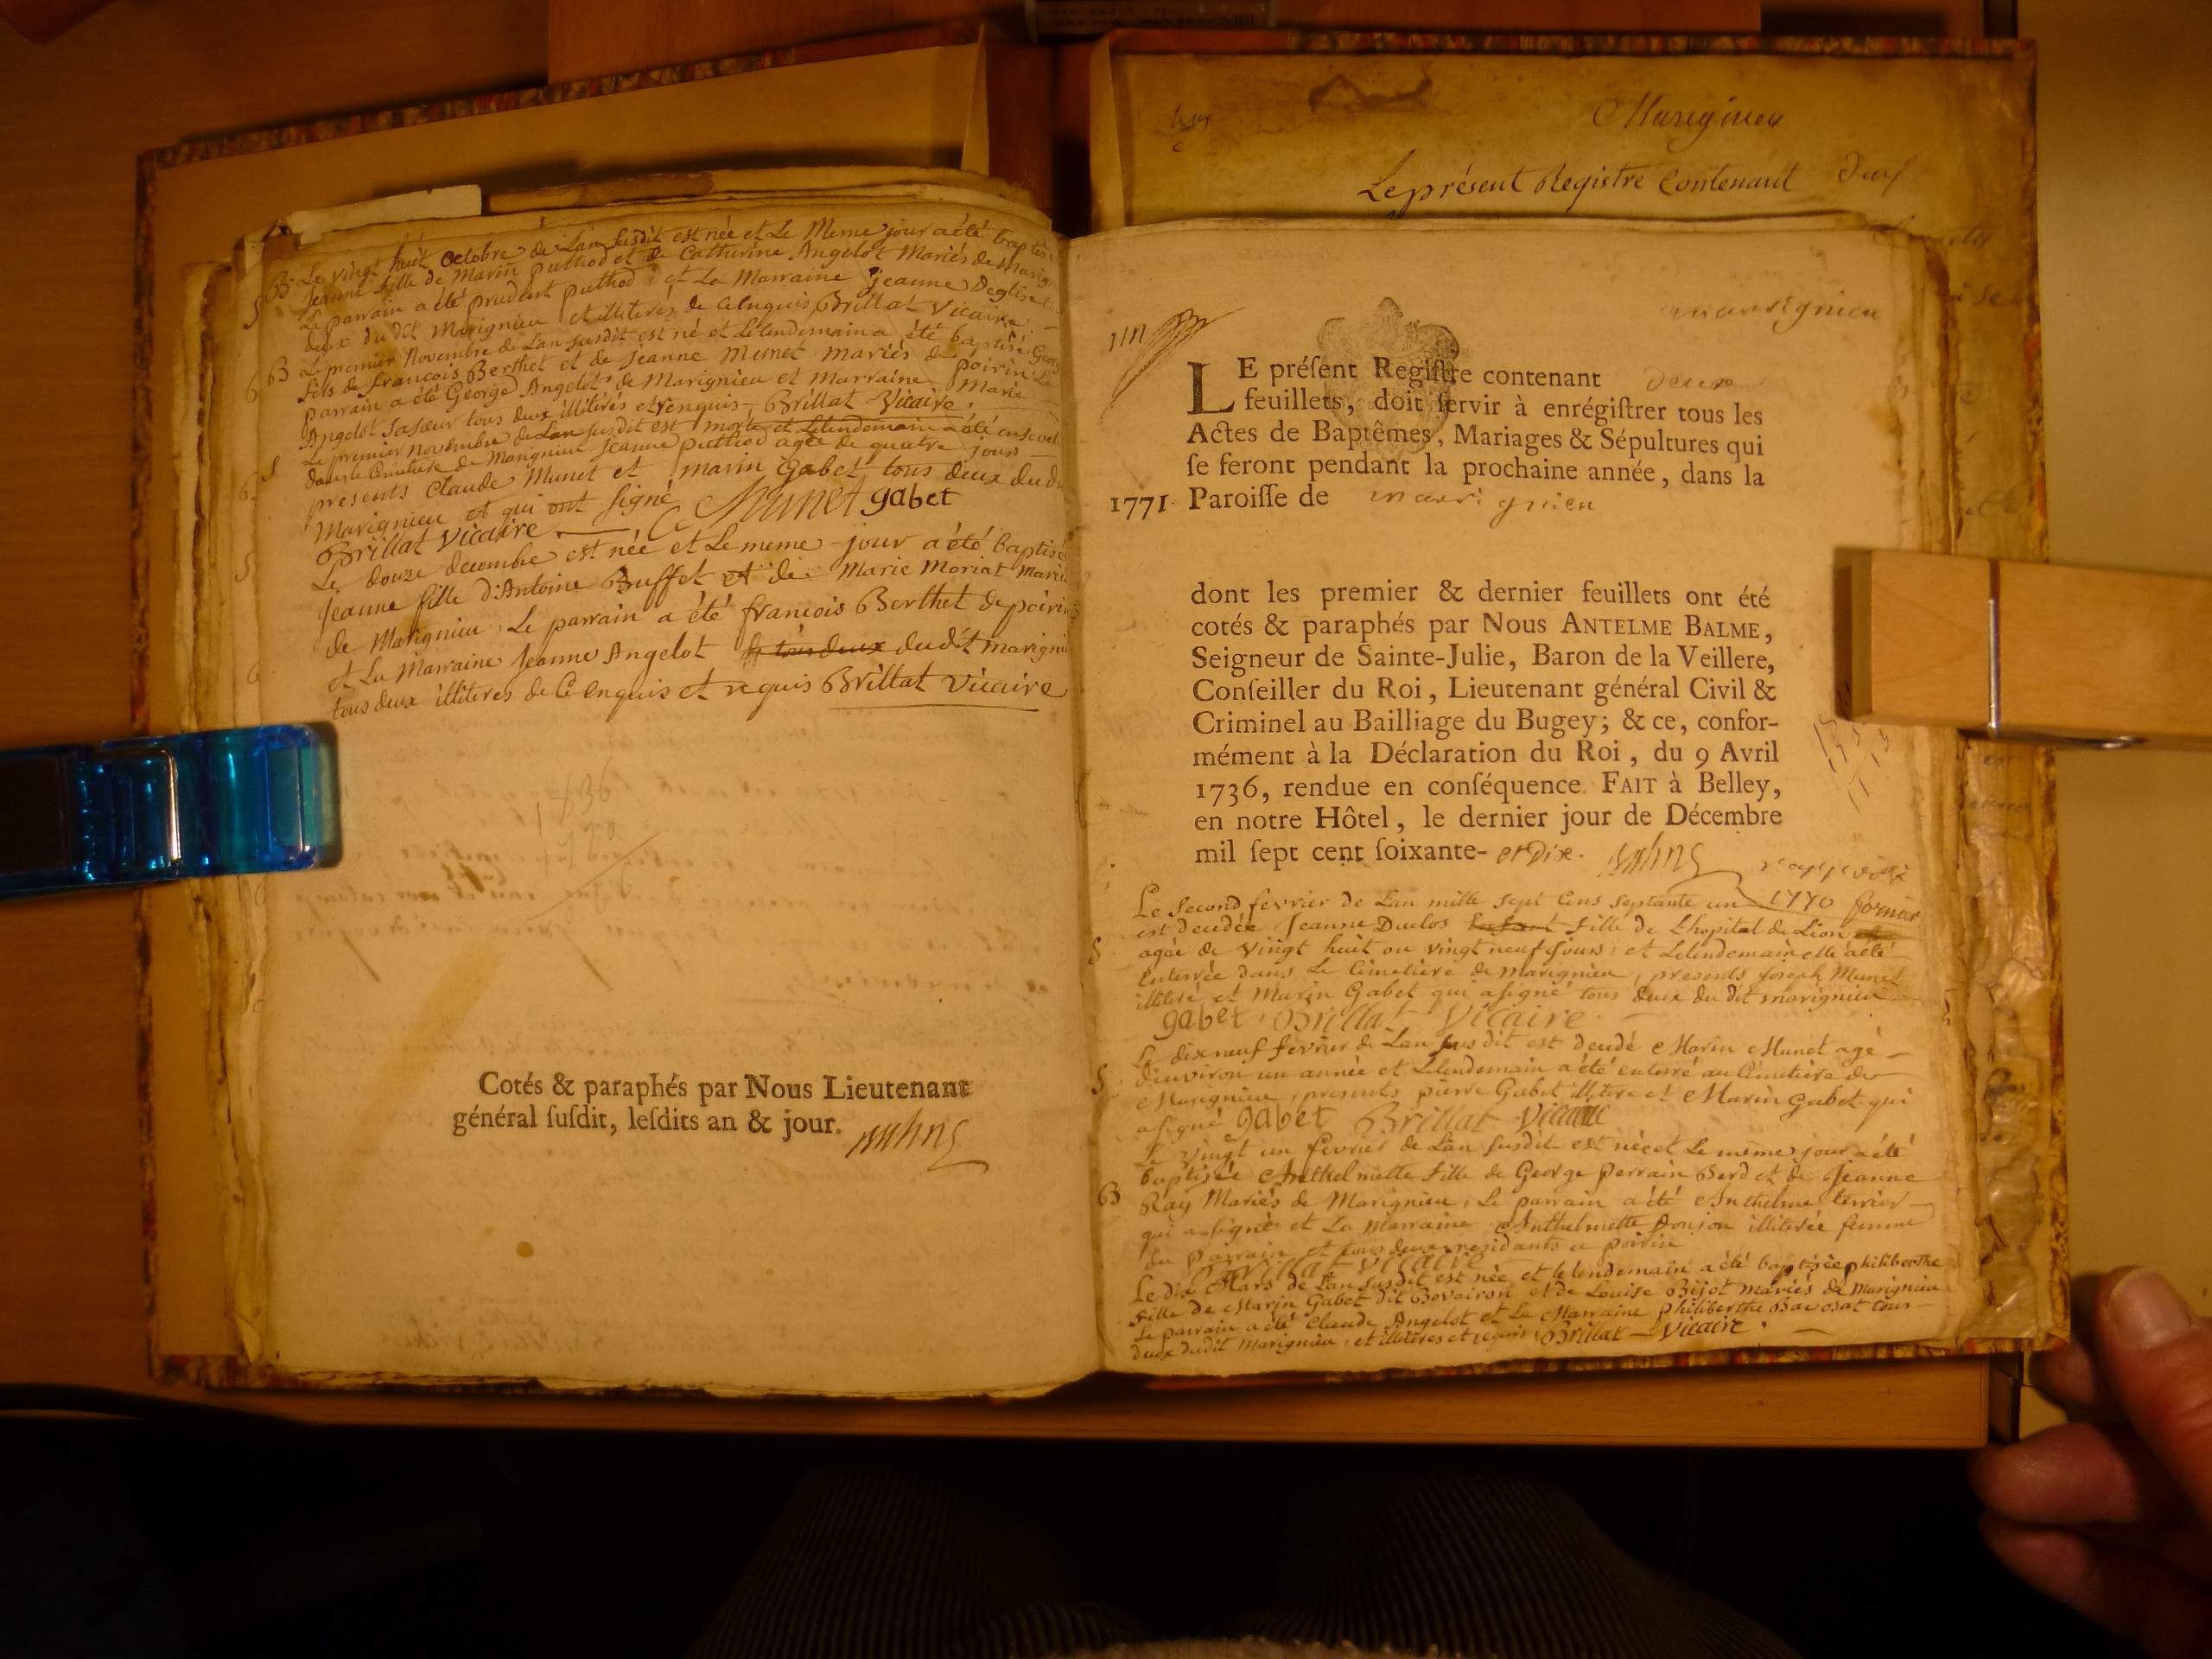 B Le vingt huit octobre de Lan susdit est née et Le Meme jour a été baptisée
Jeanne fille de Marin puthod et de Catherine Angelot Mariés de Marig
Le parrain a été prudent puthod et La Marraine Jeanne Deglise
deux du dit Marignieu et illiterés de Ce Enquis Brillat Vicaire
B Le premier Novembre de Lan susdit est né et Le lendemain a été baptisé George
fils de francois Berthet et de Jeanne Munet mariés de poirin Le
parrain a été George Angelot de Marignieu et Marraine Marie
Angelot sa sœur tous deux illiterés et enquis Brillat Vicaire
S Le premier novembre de Lan susdit est morte et Lelendemain a été enseveli
dans le Cimetiere de Marignieu Jeanne puthod agée de quatre jours
presents Claude Munet et marin gabet tous deux du d
Marignieu et qui ont signé C Munet gabet
Brillat Vicaire
Le douze decembre est née et Le meme jour a été baptisé
Jeanne fille d'Antoine Buffet et de Marie Moriat Marié
de Marignieu, Le parrain a été francois Berthet de poirin
et La Marraine Jeanne Angelot de tous deux dudit marigni
tous deux illiteres de Ce enquis et requis Brillat Vicaire
1836
Cotés & paraphés par Nous Lieutenant
général susdit, lesdits an & jour.
Marignieu
Le présent Registre Contenant deux
marignieu
LE présent Registre contenant deux
feuillets, doit servir à enrégistrer tous les
Actes de Baptêmes, Mariages & Sépultures qui
se feront pendant la prochaine année, dans la
1771 Paroisse de marignieu
dont les premier & dernier feuillets ont été
cotés & paraphés par Nous ANTELME BALME,
Seigneur de Sainte-Julie, Baron de la Veillere,
Conseiller du Roi, Lieutenant général Civil &
Criminel au Bailliage du Bugey; & ce, confor-
mément à la Déclaration du Roi, du 9 Avril
1736, rendue en conséquence. FAIT à Belley,
en notre Hôtel, le dernier jour de Décembre
mil sept cent soixante- et Dix.
Le second fevrier de Lan mille sept Cens septante un 1770
est decedée Jeanne Duclos Enfant fille de Lhopital de Lion
S agée de vingt huit ou vingt neuf jours, et Lelendemain elle a été
Enterrée dans Le Cimetiere de marignieu, presents Joseph Munet
illiteré et Marin Gabet qui a signé tous deux du dit marignieu
gabet Brillat Vicaire
Le dixneuf fevrier de Lan susdit est decedé Marin Munet agé
S d'environ un année et Lelendemain a été enterré au Cimetiere de
Marignieu, presents pierre Gabet illiteré et Marin Gabet qui
a signé gabet Brillat Vicaire
Le vingt un fevrier de Lan susdit est née et Le meme jour a été
baptisée Anthelmette fille de George perrain Berd et de Jeanne
B Ray Mariés de Marignieu, Le parrain a été Anthelme terrier
qui a signé et La Marraine Anthelmette Donjon illiterée femme
du parrain et tous deux residants a poirin
Brillat Vicaire
Le dix Mars de Lan susdit est née et le lendemain a été baptisée philiberthe
fille de Marin Gabet dit Bovairon et de Louise Bijot mariés de Marignieu
Le parrain a été Claude Angelot et La Marraine philiberthe tous
deux dudit Marignieu, et illiteres et requis Brillat Vicaire